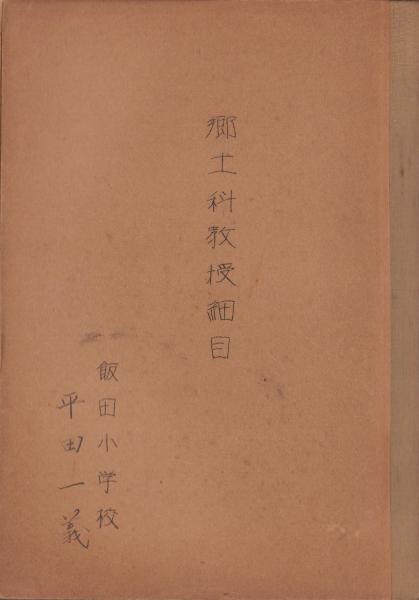 郷土科教授細目
飯田小学校
平田一義